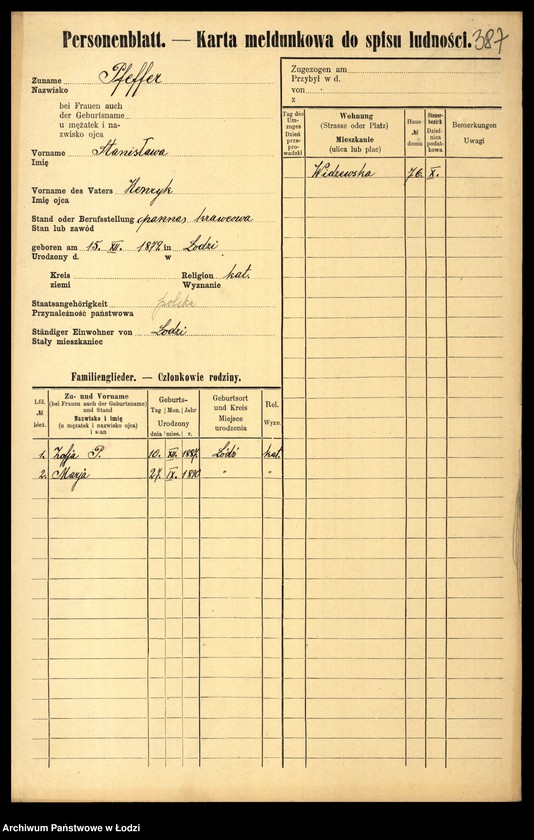 Personenblatt. — Karta meldunkowa do spisu ludności. 387
Zuname Pfeffer
Nazwisko
bei Frauen auch
der Geburtsname
u mężatek i na-
zwisko ojca
Vorname Stanisława
Imię
Vorname des Vaters Henryk
Imię ojca
Stand oder Berufsstellung (panna) krawcowa
Stan lub zawód
geboren am 15. XII. 1872 in Lodzi
Urodzony d. w
Kreis
ziemi
Religion kat.
Wyznanie
Staatsangehörigkeit polska
Przynależność państwowa
Ständiger Einwohner von Lodzi
Stały mieszkaniec
Familienglieder. — Członkowie rodziny.
Lfd. № bież.
Zu- und Vorname
(bei Frauen auch der Geburtsname)
und Stand
Nazwisko i imię
(u mężatek i nazwisko ojca)
i stan
Geburts-
Tag Mon. Jahr
Urodzony
dnia mies. r.
Geburtsort
und Kreis
Miejsce
urodzenia
Rel.
Wyzn.
1. Zofja P. 10. XII. 1887. Łódź kat.
2. Marja 27. IX. 1890 " "
Zugezogen am
Przybył w d.
von
z
Tag des
Um-
zuges
Dzień
prze-
prowadzki
Wohnung
(Strasse oder Platz)
Mieszkanie
(ulica lub plac)
Haus-
№
domu
Steuer-
bezirk
Dziel-
nica
podat-
kowa
Bemerkungen
Uwagi
Widzewska 76. X.
Archiwum Państwowe w Łodzi